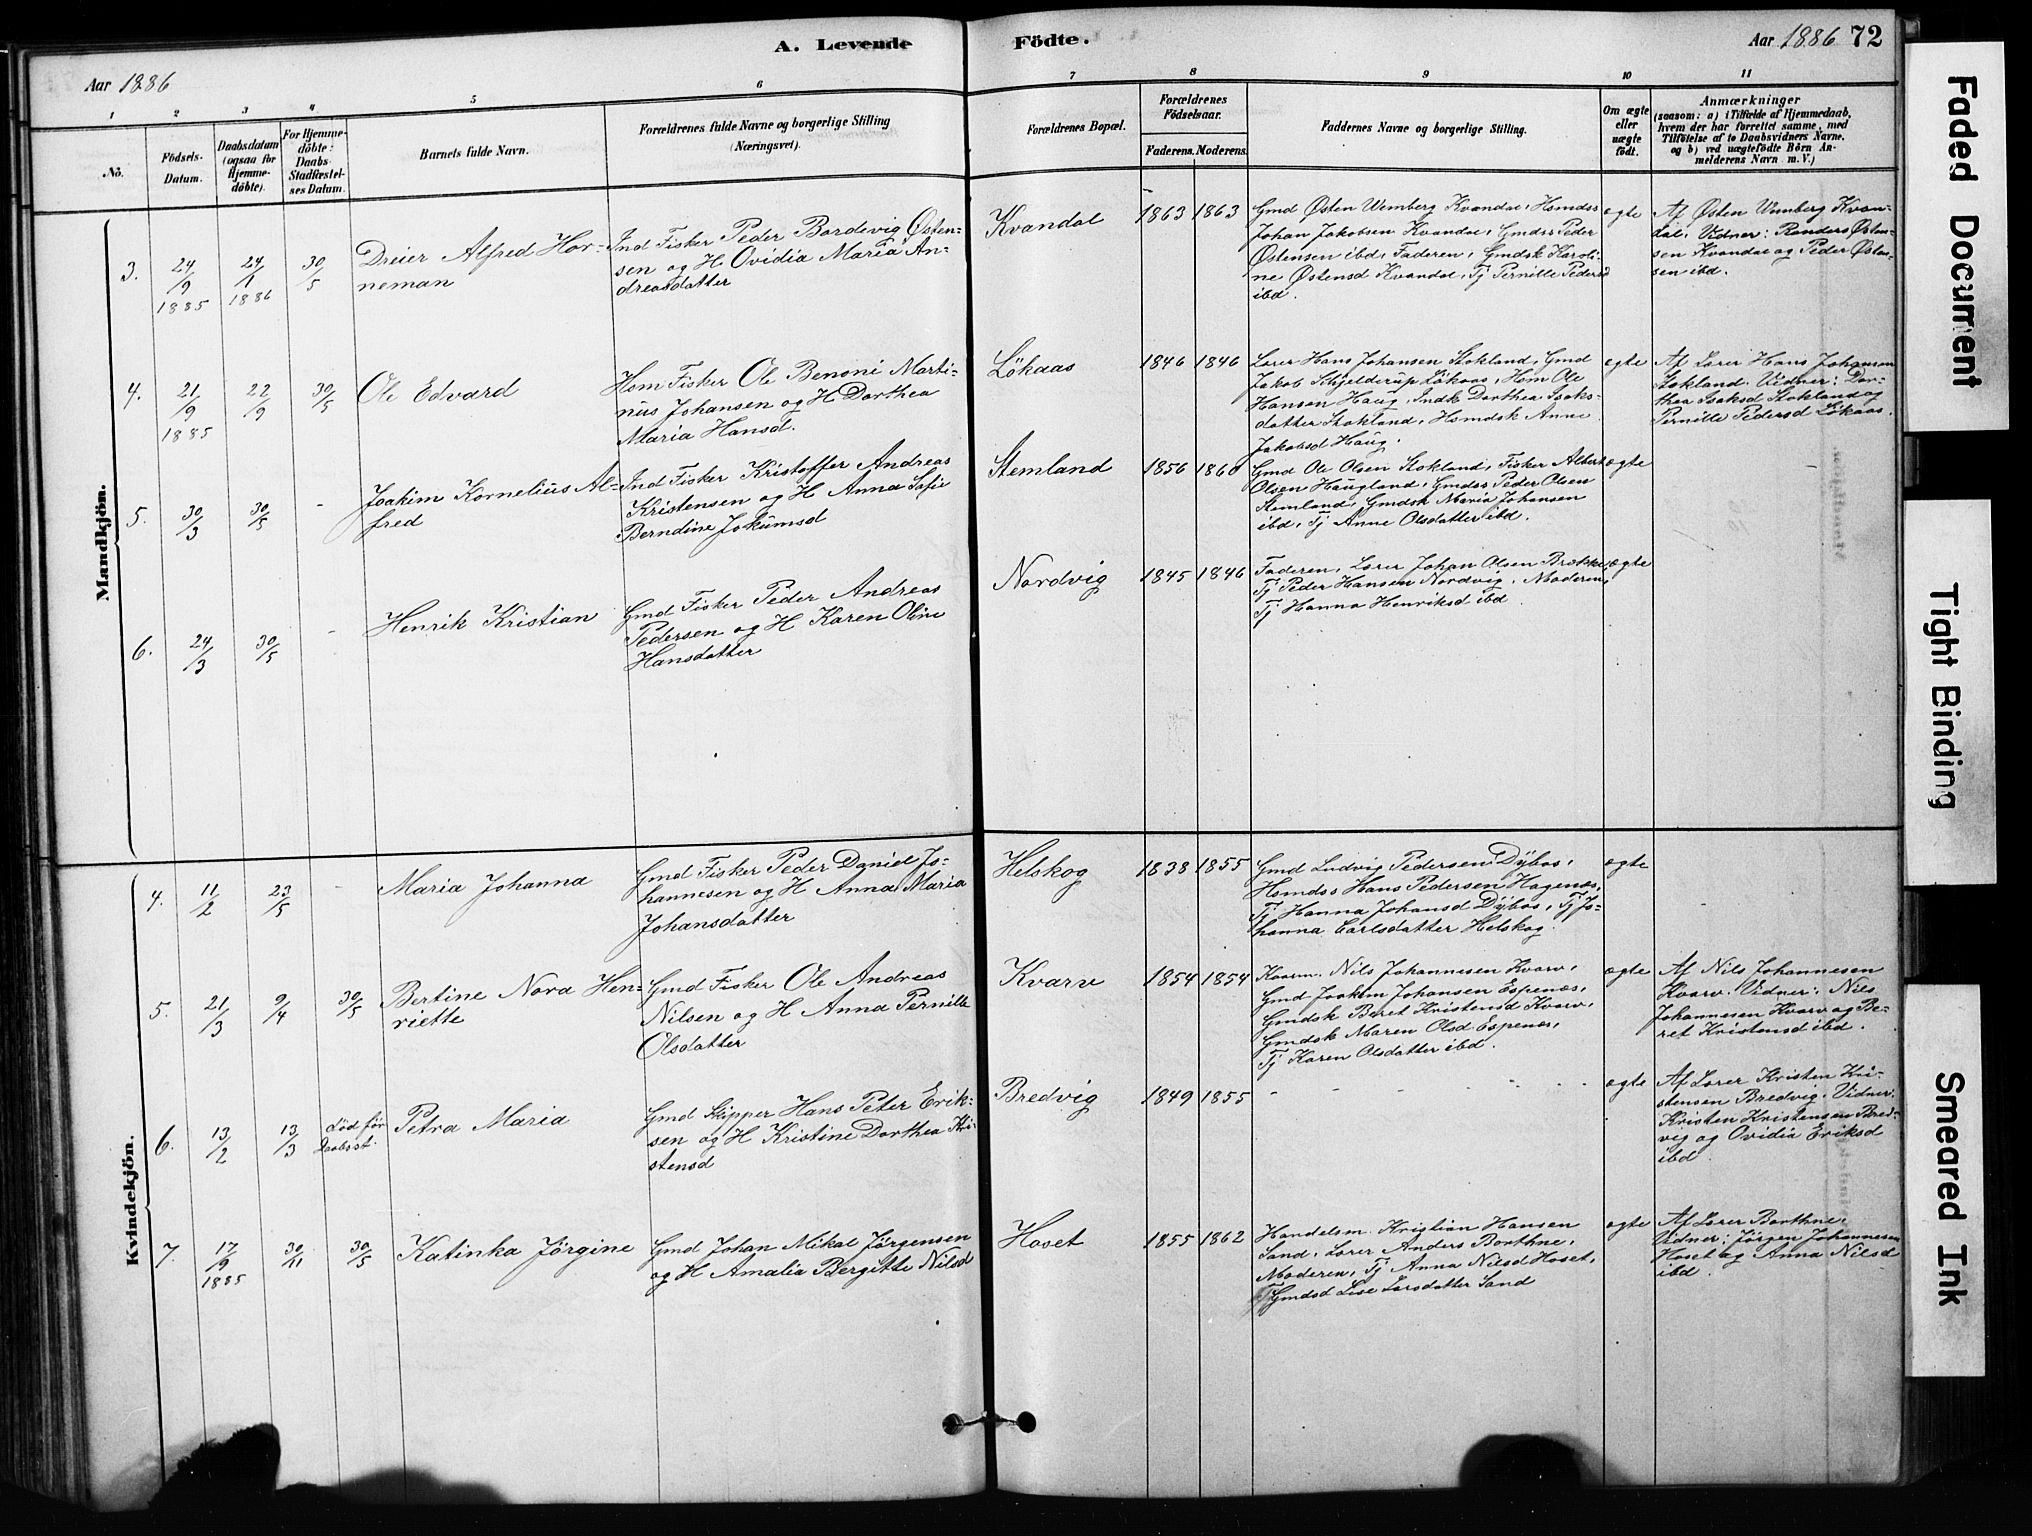 A. Levende
Födte.
Aar 1886
Aar 1886 72
1 2 3 4 5 6 7 8 9 10 11
No.
Födsels-
Datum.
Daabsdatum
(ogsaa för
Hjemme-
döbte).
For Hjemme-
döbte:
Daabs-
Stadfæstel-
ses Datum.
Barnets fulde Navn.
Forældrenes fulde Navne og borgerlige Stilling
(Næringsvei).
Forældrenes Bopæl.
Forældrenes
Födselsaar.
Faderens. Moderens.
Faddernes Navne og borgerlige Stilling.
Om ægte
eller
uægte
födt.
Anmærkninger
(saasom: a) i Tilfælde af Hjemmedaab,
hvem der har forrettet samme, med
Tilföielse af to Daabsvidners Navne.
og b) ved uægtefödte Börn An-
melderens Navn m. V.)
Mandkjön.
3.
24/9
1885
24/1
1886
30/5
Dreier Alfred Hor-
neman
Ind Fisker Peder Bordevig Østen-
sen og H Ovidia Maria An-
dreasdatter
Kvandal
1863 1863
Gmd Østen Wemberg Kvandal, Hsmdss
Johan Jakobsen Kvandal, Gmdss Peder
Østensen ibd, Faderen, Gmdsk Karoli-
ne Østensd Kvandal, Tj Pernille Pedersd
ibd.
ægte
Af Østen Wemberg Kvan-
dal, Vidner: Randers Østen-
sen Kvandal og Peder Østen-
sen ibd.
4.
21/9
1885
22/9
30/5
Ole Edvard
Hsm Fisker Ole Benoni Marti-
nus Johansen og H Dorthea
Maria Hansd.
Lökaas
1846 1846
Lærer Hans Johansen Stokland, Gmd
Jakob Schjelderup Lökaas, Hsm Ole
Hansen Haug, Indk Dorthea Isaks-
datter Stokland, Hsmdsk Anne
Jakobsd Haug.
ægte
Af Lærer Hans Johansen
Stokland. Vidner: Dor-
thea Isaksd Stokland og
Pernille Pedersd Lökaas.
5.
30/3
30/5
-
Joakim Kornelius Al-
fred
Ind Fisker Kristoffer Andreas
Kristensen og H Anna Sofie
Berndine Jokumsd
Stemland
1856 1860
Gmd Ole Olsen Stokland, Fisker Albert
Olsen Haugland, Gmdss Peder Olsen
Stemland, Gmdsk Maria Johansen
ibd, Tj Anne Olsdatter ibd.
ægte
6.
24/3
30/5
-
Henrik Kristian
Gmd Fisker Peder Andreas
Pedersen og H Karen Oline
Hansdatter
Nordvig
1845 1846
Faderen, Lærer Johan Olsen Brække,
Tj Peder Hansen Nordvig, Moderen,
Tj Hanna Henriksd ibd.
ægte
Kvindekjön.
4.
11/2
23/5
-
Maria Johanna
Gmd Fisker Peder Daniel Jo-
hannesen og H Anna Maria
Johansdatter
Helskog
1838 1855
Gmd Ludvig Pedersen Dybos,
Hsmdss Hans Pedersen Hagenæs,
Tj Hanna Johansd Dybos, Tj Jo-
hanna Carlsdatter Helskog.
ægte
5.
21/3
9/4
30/5
Bertine Nora Hen-
riette
Gmd Fisker Ole Andreas
Nilsen og H Anna Pernille
Olsdatter
Kvarv
1854 1854
Kaarm. Nils Johannesen Kvarv,
Gmd Joakim Johansen Espenæs,
Gmdsk Beret Kristensd Kvarv,
Gmdsk Maren Olsd Espenæs,
Tj Karen Olsdatter ibd.
ægte
Af Nils Johannesen
Kvarv. Vidner: Nils
Johannesen Kvarv og Be-
ret Kristensd ibd.
6.
13/2
13/3
död för
Daabsst.
Petra Maria
Gmd Skipper Hans Peter Erik-
sen og H Kristine Dorthea Kri-
stensd
Bredvig
1849 1855
- - - - - -
ægte
Af Lærer Kristen Kri-
stensen Bredvig. Vidner:
Kristen Kristensen Bred-
vig og Ovidia Eriksd
ibd.
7.
17/9
1885
30/11
30/5
Katinka Jörgine
Gmd Johan Mikal Jörgensen
og H Amalia Bergitte Nilsd
Hoset
1855 1862
Handelsm. Kristian Hansen
Sand, Lærer Anders Borthne,
Moderen, Tj Anna Nilsd Hoset,
Gmdsd Lise Larsdatter Sand
ægte
Af Lærer Borthne,
Vidner: Jörgen Johannesen
Hoset og Anna Nilsd
ibd.
Faded Document
Tight Binding
Smeared Ink